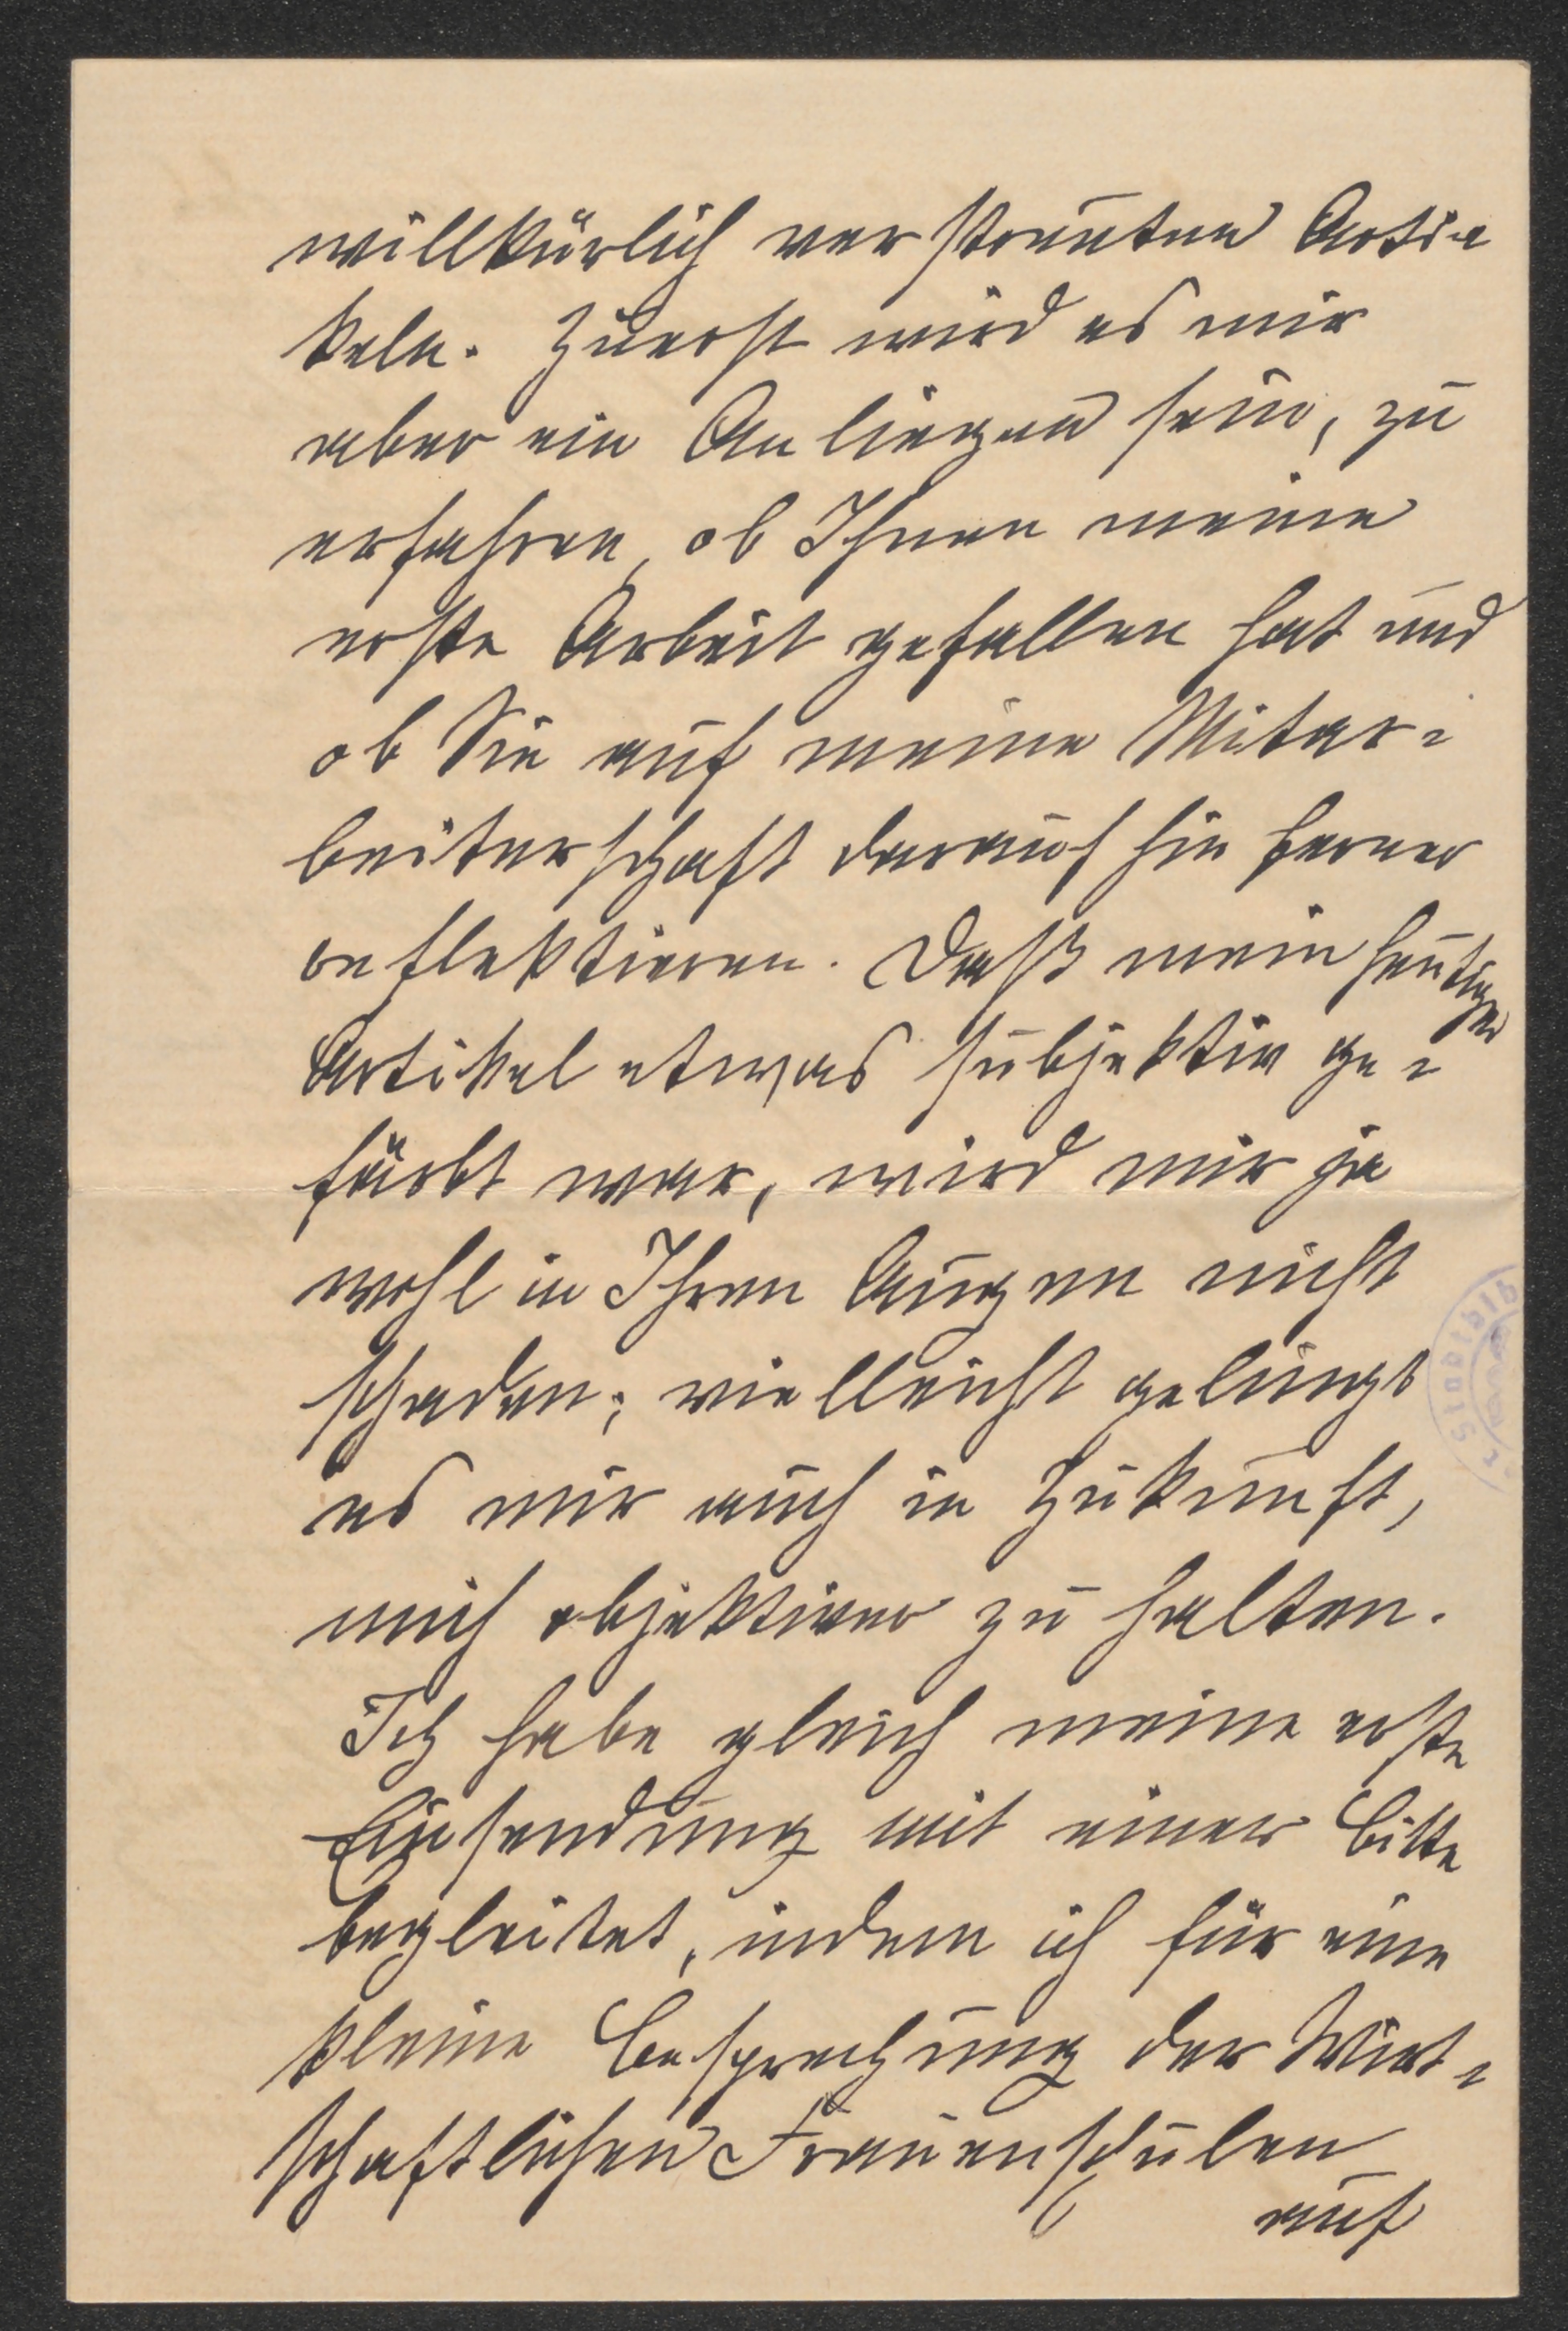 willkürlich verstreuten Arti-
keln. Zuerst wird es mir
aber ein Anliegen sein, zu
erfahren, ob Ihnen meine
erste Arbeit gefallen hat und
ob Sie auf meine Mitar-
beiterschaft daraufhin ferner
reflektieren. Daß mein heutiger
Artikel etwas subjektiv ge-
färbt war, wird mir ja
wohl in Ihren Augen nicht
schaden; vielleicht gelingt
es mir auch in Zukunft,
mich objektiver zu halten.
Ich habe gleich meine erste
Einsendung mit einer Bitte
begleitet, indem ich für eine
kleine Besprechung der Wirt-
schaftlichen Frauenschulen
auf